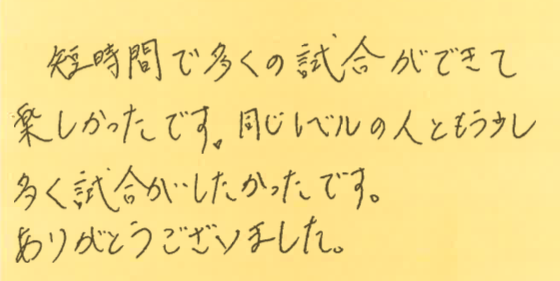 短時間で多くの試合ができて
楽しかったです。同じレベルの人ともう少し
多く試合がしたかったです。
ありがとうございました。